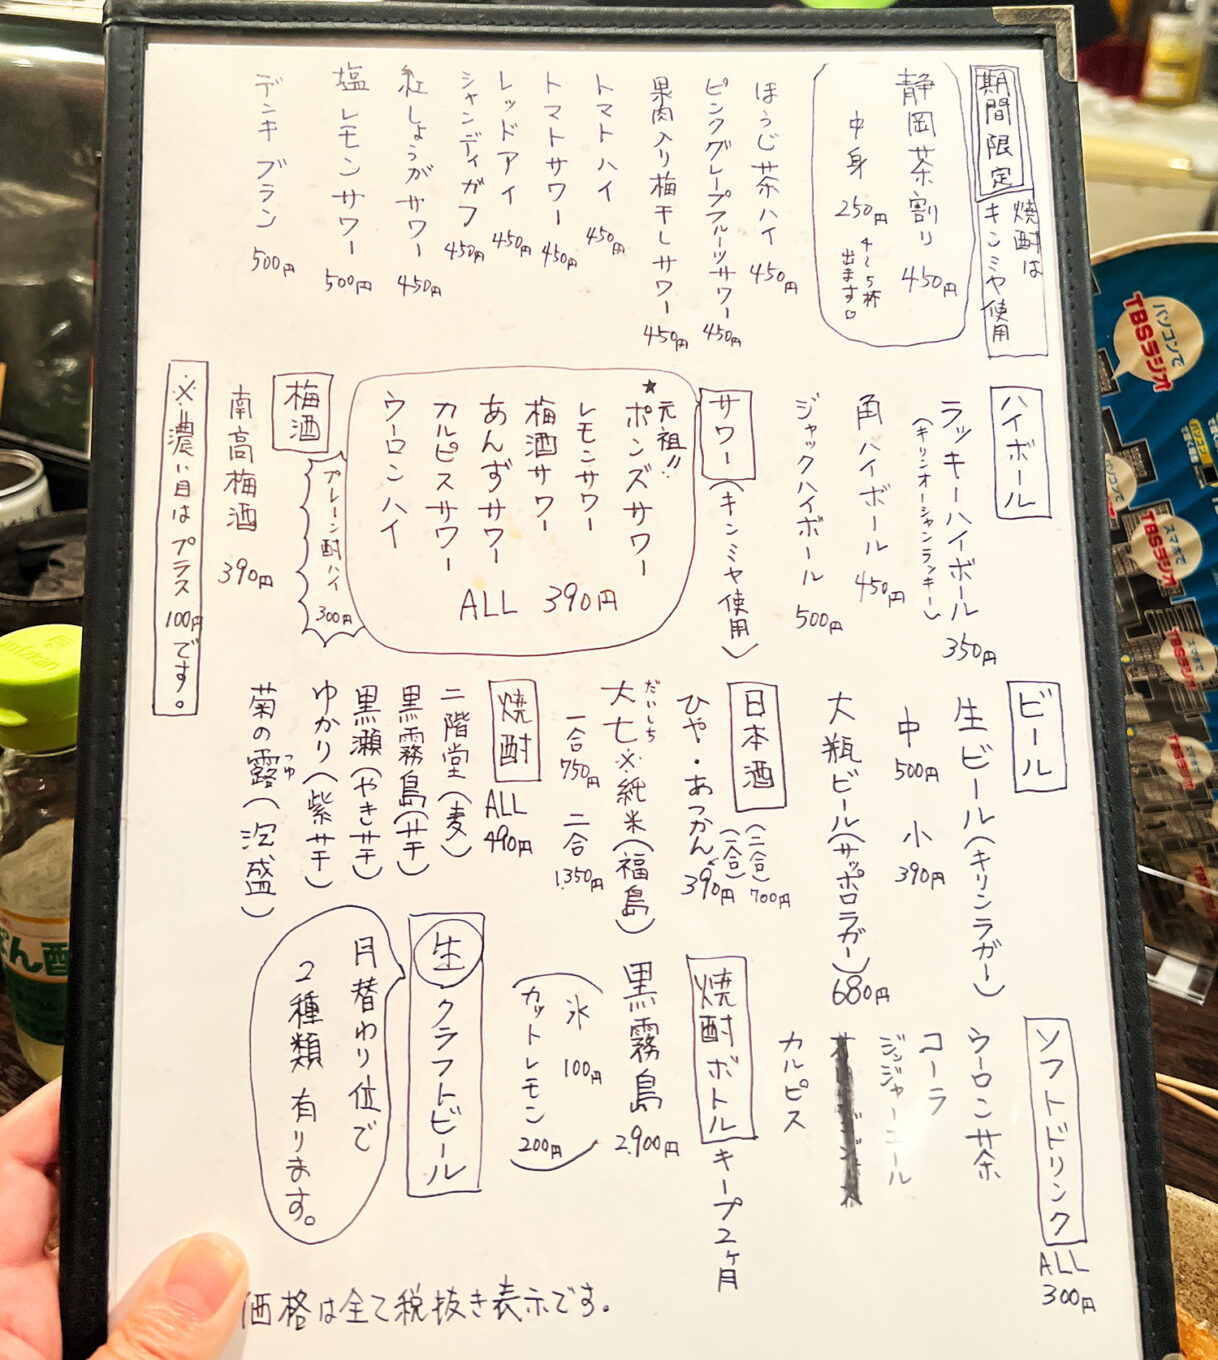 期間限定
焼酎は
キンミヤ使用
静岡茶割り 450円
中身 250円
4〜5杯
出ます。
ほうじ茶ハイ 450円
ピンクグレープフルーツサワー 450円
果肉入り梅干しサワー 450円
トマトハイ 450円
トマトサワー 450円
レッドアイ 450円
シャンディガフ 450円
紅しょうがサワー 450円
塩レモンサワー 500円
デンキブラン 500円
ハイボール
ラッキーハイボール 350円
(キリンオーシャンラッキー)
角ハイボール 450円
ジャックハイボール 500円
サワー(キンミヤ使用)
★元祖!!
ポンズサワー
レモンサワー
梅酒サワー
あんずサワー
カルピスサワー
ウーロンハイ
ALL 390円
プレーン酎ハイ 300円
梅酒
南高梅酒 390円
※濃い目はプラス100円です。
ビール
生ビール(キリンラガー)
中 500円 小 390円
大瓶ビール(サッポロラガー) 680円
日本酒
(二合) 700円
(一合)
ひや・あつかん 390円
だいしち
大七※純米(福島)
一合 750円 二合 1,350円
焼酎
ALL 490円
二階堂(麦)
黒霧島(芋)
黒瀬(やき芋)
ゆかり(紫芋)
つゆ
菊の露(泡盛)
ソフトドリンク
ALL 300円
ウーロン茶
コーラ
ジンジャーエール
カルピス
焼酎ボトル キープ2ヶ月
黒霧島 2,900円
氷 100円
カットレモン 200円
生クラフトビール
月替わり位で
2種類有ります。
価格は全て税抜き表示です。
パソコンで
TBSラジオ
パソコンで
TBSラジオ
スマホで
TBSラジオ
TBSラジオ
mizkan
ぽん酢